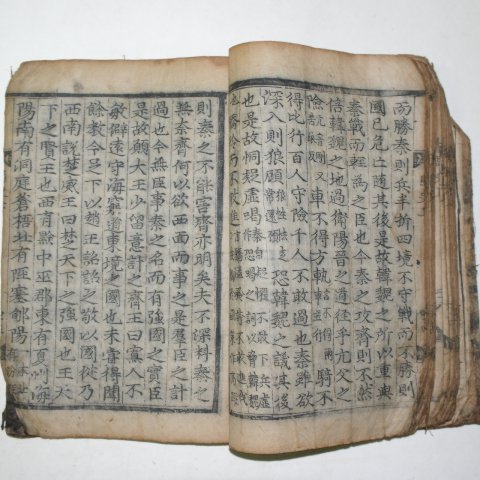 而勝秦則兵半折四境不守戰而不勝則
國已危亡隨其後是故韓魏之所以重與
秦戰而輕爲之臣也今秦之攻齊則不然
倍韓魏之地過衛陽晉之道徑乎亢父之
險車不得方軌騎不
得比行百人守險千人不敢過也秦雖欲
深入則狼顧恐韓魏之議其後
也是故恫疑虛喝
矜而不敢進
則秦之不能害齊亦明矣夫不深料秦之
無奈齊何以欲西面而事之是羣臣之計
過也今無臣事秦之名而有强國之實臣
是故願大王少留意計之齊王曰寡人不
敏僻遠守海窮道東境之國也未嘗得聞
餘敎今足下以趙王詔詔之敬以國從乃
西南說楚威王曰楚天下之强國也王天
下之賢王也西有黔中巫郡東有夏州海
陽南有洞庭蒼梧北有陘塞郇陽